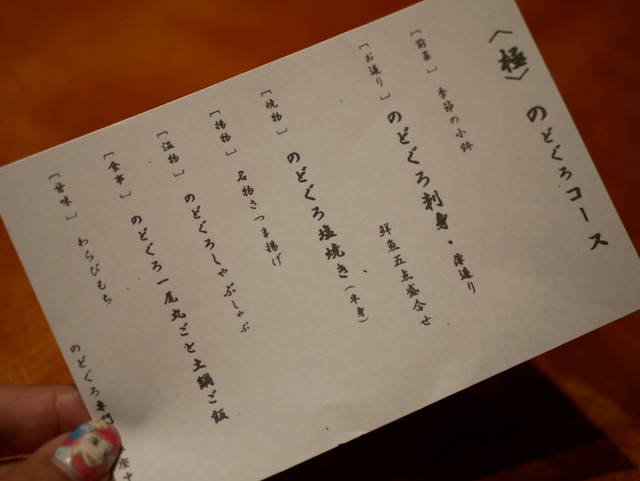 〈極〉 のどぐろコース
［前菜］ 季節の小鉢
［お造り］ のどぐろ刺身・
鮮魚五点盛合せ
［焼物］ のどぐろ塩焼き（半身）
［揚物］ 名物さつま揚げ
［温物］ のどぐろしゃぶしゃぶ
［食事］ のどぐろ一尾丸ごと土鍋ご飯
［甘味］ わらびもち
のどぐろ専門